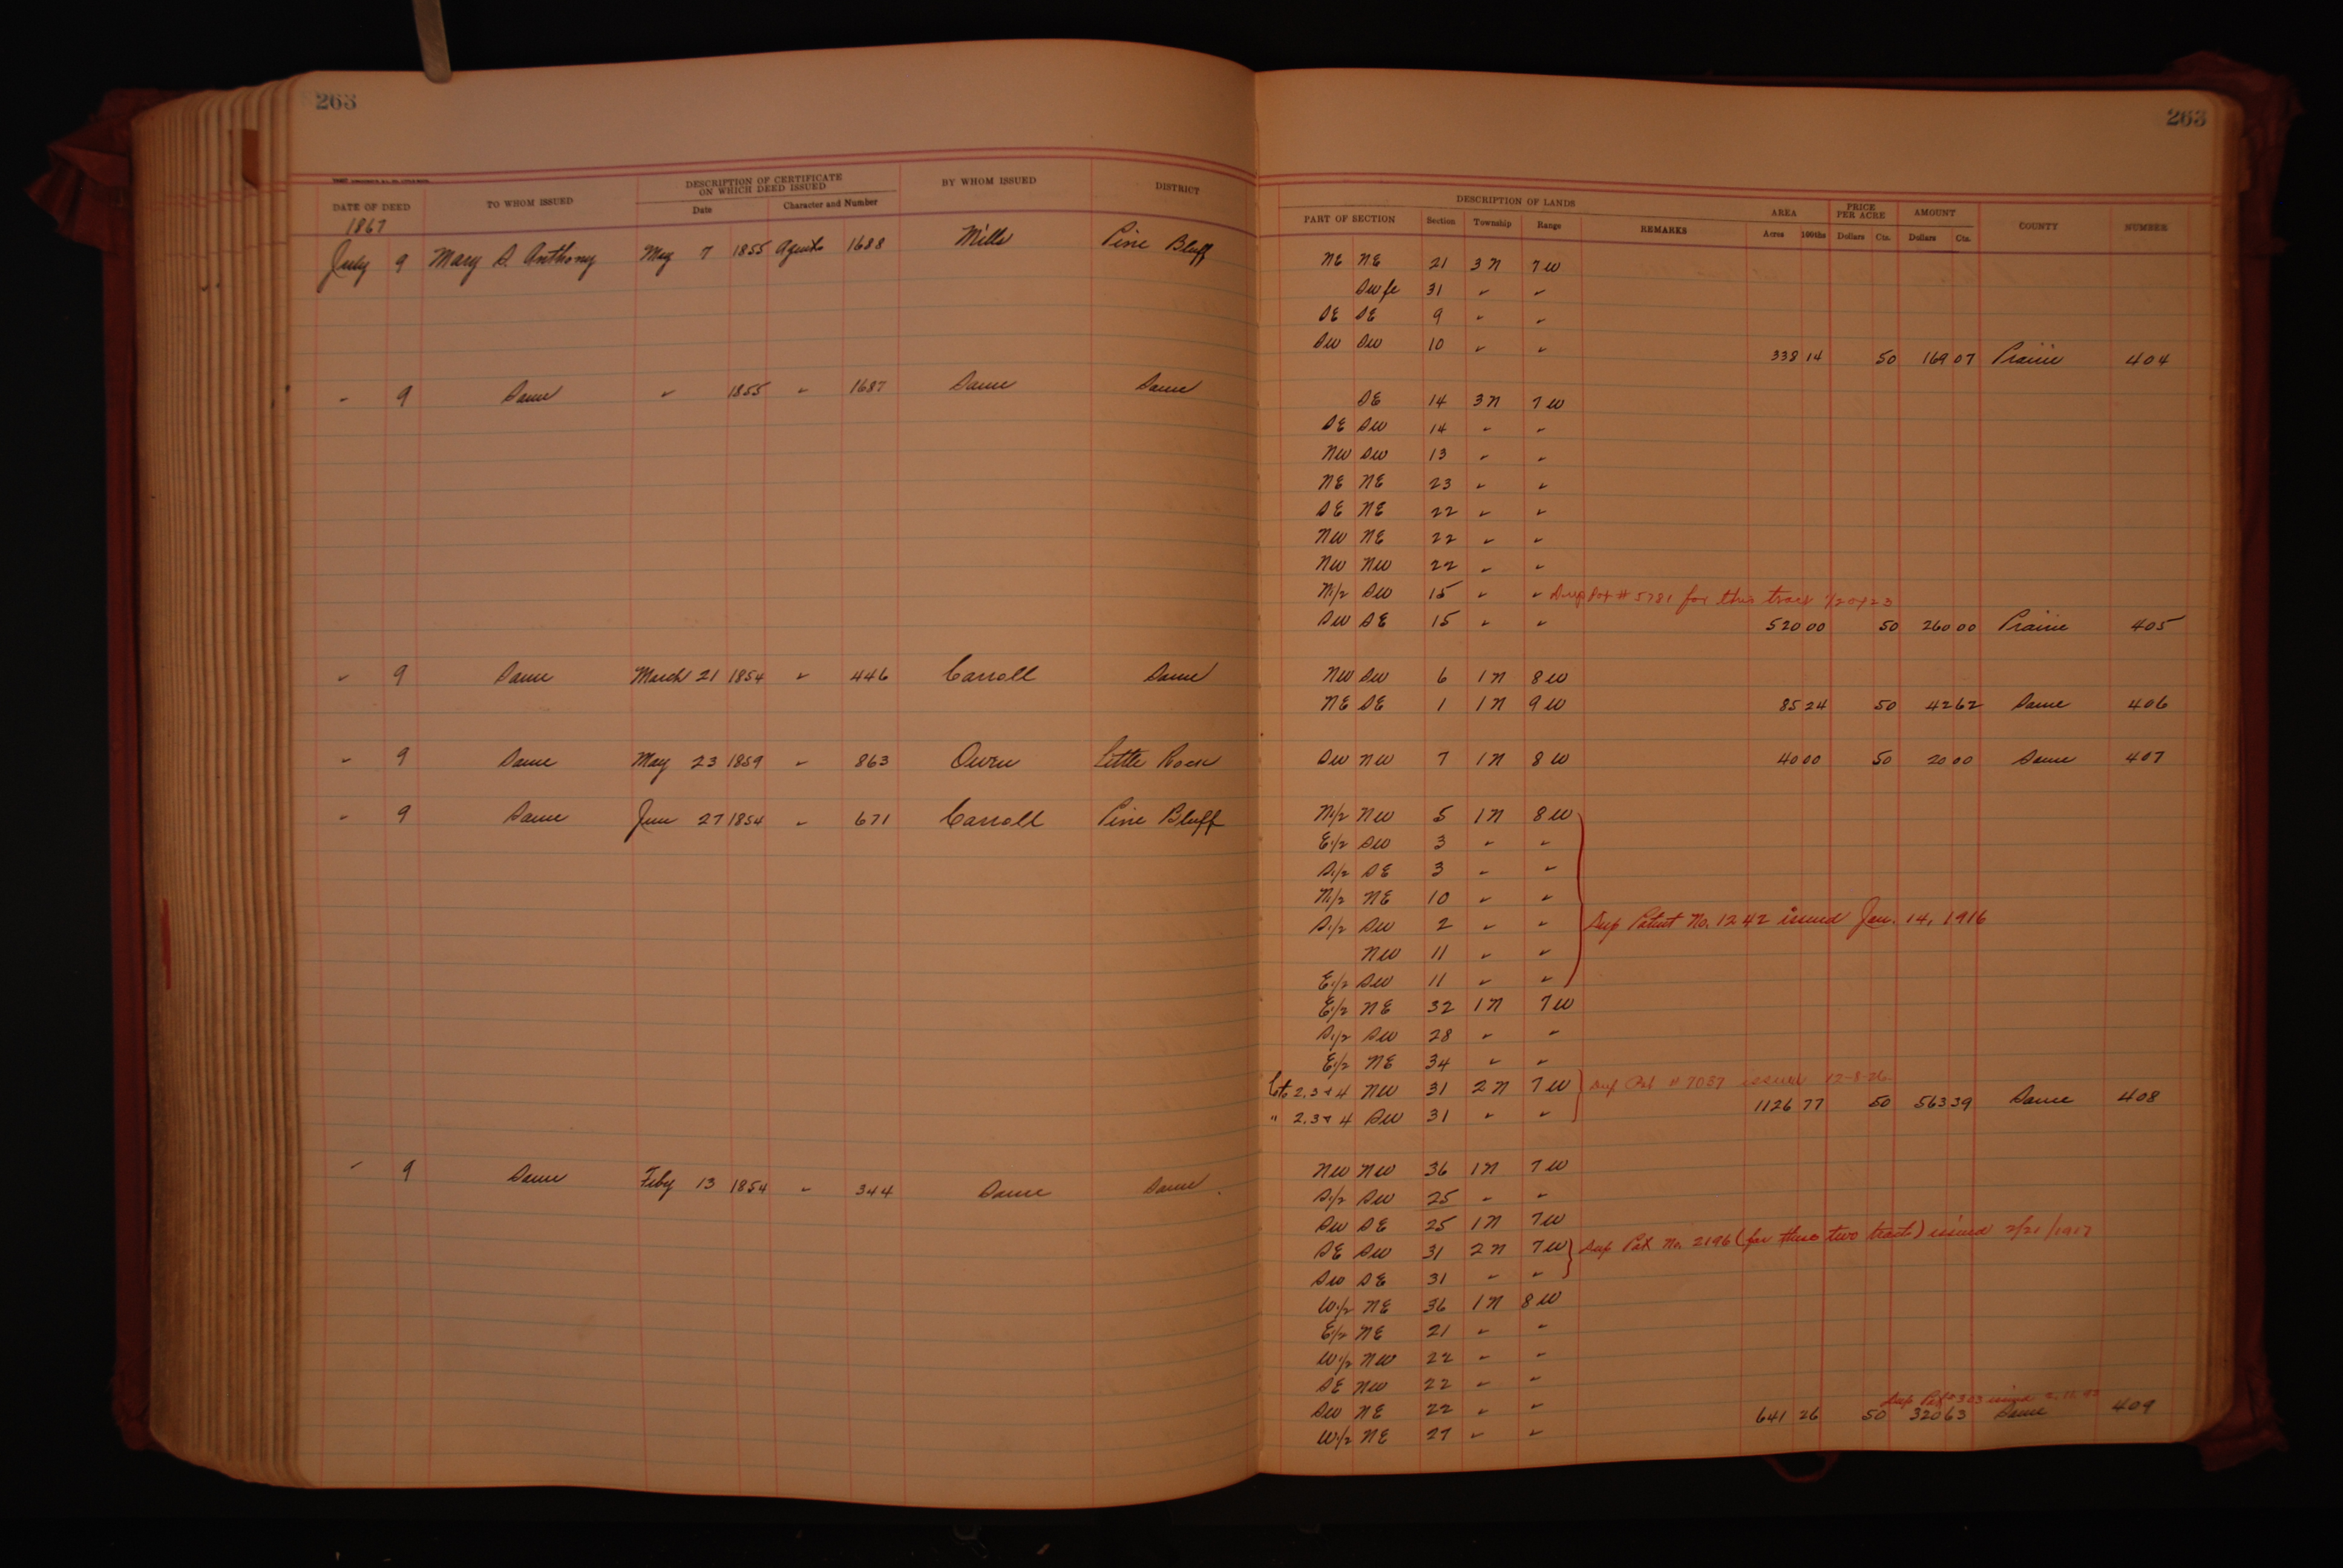 263 263
DESCRIPTION OF CERTIFICATE ON WHICH DEED ISSUED DESCRIPTION OF LANDS
DATE OF DEED TO WHOM ISSUED Date Character and Number BY WHOM ISSUED DISTRICT PART OF SECTION Section Township Range REMARKS AREA Acres 100ths PRICE PER ACRE Dollars Cts. AMOUNT Dollars Cts. COUNTY NUMBER
1867
July 9 Mary S. Anthony May 7 1855 1688 Mills Pine Bluff NE NE 21 3N 7W
SW fr 31 " "
SE SE 9 " "
SW SW 10 " " 338 14 50 169 07 Prairie 404
" 9 Same " 1855 " 1687 Same Same SE 14 3N 7W
SE SW 14 " "
NW SW 13 " "
NE NE 23 " "
SE NE 22 " "
NW NE 22 " "
NW NW 22 " "
N1/2 SW 15 " " Dup Pat # 5781 for this tract 1/20/23
SW SE 15 " " 520 00 50 260 00 Prairie 405
" 9 Same March 21 1854 " 446 Carroll Same NW SW 6 1N 8W
NE SE 1 1N 9W 85 24 50 42 62 Same 406
" 9 Same May 23 1859 " 863 Owen Little Rock SW NW 7 1N 8W 40 00 50 20 00 Same 407
" 9 Same June 27 1854 " 671 Carroll Pine Bluff N1/2 NW 5 1N 8W
E1/2 SW 3 " "
S1/2 SE 3 " "
N1/2 NE 10 " "
S1/2 SW 2 " " Dup Patent No. 1242 issued Jan. 14, 1916
NW 11 " "
E1/2 SW 11 " "
E1/2 NE 32 1N 7W
S1/2 SW 28 " "
E1/2 NE 34 " "
Lots 2.3+4 NW 31 2N 7W Dup Pat # 7037 issued 12-8-26
" 2.3+4 SW 31 " " 1126 77 50 563 39 Same 408
" 9 Same Feby 13 1854 " 344 Same Same NW NW 36 1N 7W
S1/2 SW 25 " "
SW SE 25 1N 7W
SE SW 31 2N 7W Dup Pat No. 2196 (for these two tracts) issued 2/21/1917
SW SE 31 " "
W1/2 NE 36 1N 8W
E1/2 NE 21 " "
W1/2 NW 22 " "
SE NW 22 " "
SW NE 22 " " Dup Pat issued
W1/2 NE 27 " " 641 26 50 320 63 Same 409